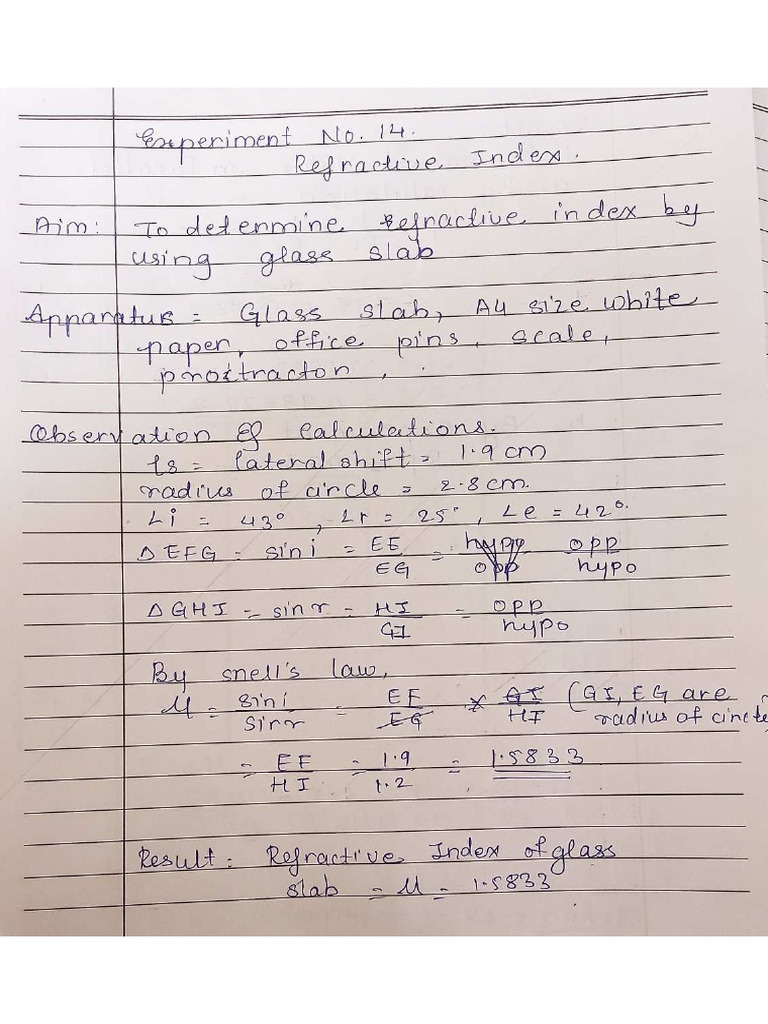 Experiment No. 14.
Refractive Index.
Aim: To determine refractive index by
using glass slab
Apparatus = Glass slab, A4 size white
paper, office pins, scale,
protractor, .
Observation & Calculations.
ts = lateral shift = 1.9 cm
radius of circle = 2.8 cm.
∠i = 43°, ∠r = 25°, ∠e = 42°.
Δ EFG = sin i = EF/EG = opp/hypo
Δ GHI = sin r = HI/GI = opp/hypo
By snell's law,
μ = sin i/sin r = EF/EG × GI/HI (GI, EG are radius of circle)
= EF/HI = 1.9/1.2 = 1.5833
Result: Refractive Index of glass
slab = μ = 1.5833